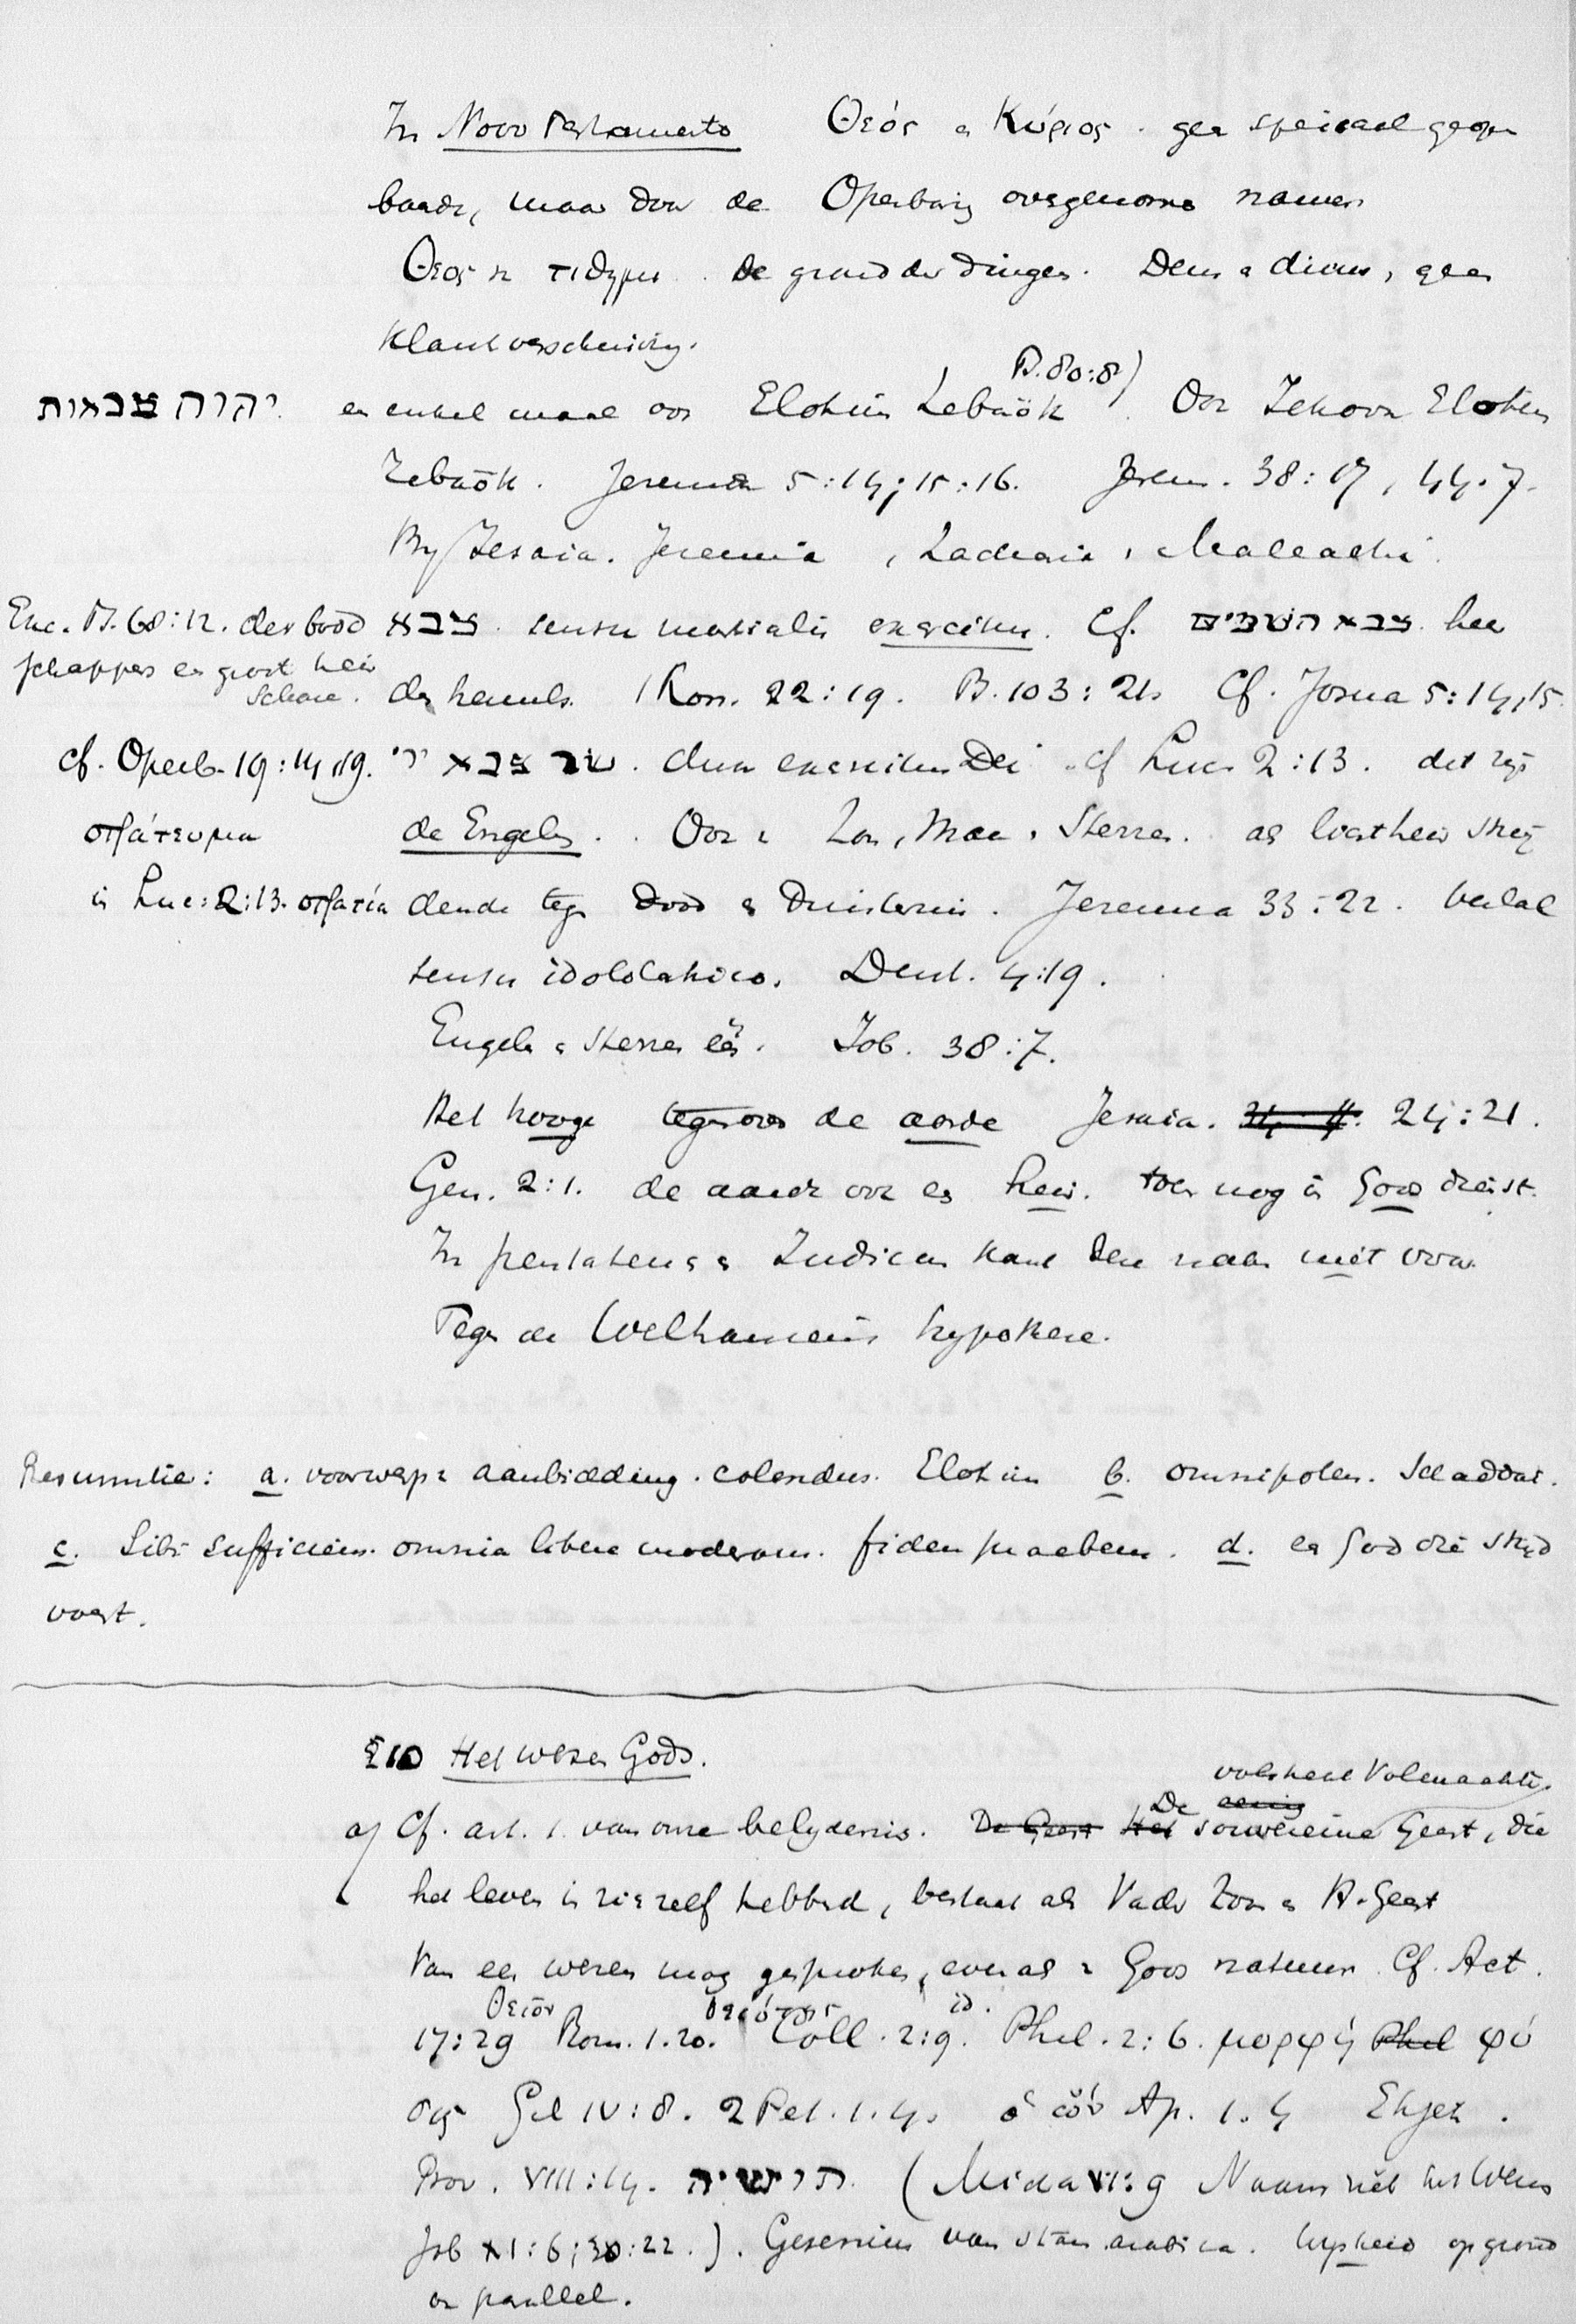 In Novo Testamento Θεός e Κύριος. geen speciaal geopen
baarde, maar door de Openbaring overgenomen namen
Θεος τιθημι. de grond der dingen. Deus e divus, geen
Klankverschuiving.
Ps. 80:8)
יהוה צבאות en enkel maal oos Elohim Zebaôth. Ook Jehova Elohim
Zebaôth. Jeremia 5:14; 15:16. Jerem. 38:17, 44:7.
By Jesaia. Jeremia, Zacharia, Maleachi.
Enc. Ps. 68:12. der bood צבא. sensu materialis exercitus. Cf. צבא השמים heer
schappers en groot heir
schare. des hemels. 1 Kon. 22:19. Ps. 103:21. Cf. Josua 5:14,15.
cf. Openb. 19:14,19. שר צבא יי. dux exercitus Dei. cf Luc. 2:13. dit zijn
στράτευμα de Engelen. Ook Zon, Maan, Sterren. als lichtheir strij
in Luc: 2:13. στρατία dende tegen dood en duisternis. Jeremia 33:22.
sensu idololatrico. Deut. 4:19.
Engelen e sterren één. Job. 38:7.
Het hooge tegenover de aarde Jesaia. 24:21.
Gen. 2:1. de aarde ook en heir. toen nog in Gods dienst.
In pentateuch e Judicum komt deze naam niet voor.
Tegen de Wellhausens hypothese.
Resumtie: a. voorwerp aanbidding. colendus. Elohim b. omnipotens. Schaddai.
c. Sibi sufficiens. omnia libere moderans. fidem praebens. d. en God die strijd
voert.
§10 Het wezen Gods.
volstrekt Volmaakte
De eenig
a) Cf. art. 1. van onze belydenis. De Geest Het souvereine Geest, die
het leven in zich zelf hebbend, bestaat als Vader Zoon e H. Geest
Van een wezen mag gesproken, evenals Gods natuur. Cf. Act.
Θεῖον θειότης id.
17:29 Rom. 1.20. Coll. 2:9. Phil. 2:6. μορφή Phil φύ
σις Gal IV:8. 2 Pet. 1.4. ὁ ὤν Ap. 1.4 Ehjeh.
Prov. VIII:14. תושיה. (Micha VI:9 Naam ziet het Wezen
Job XI:6; 30:22.). Gesenius van stam arabica. wysheid op grond
en parallel.